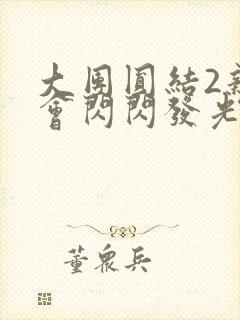 大團圓結2新
會閃閃發光
董眾兵